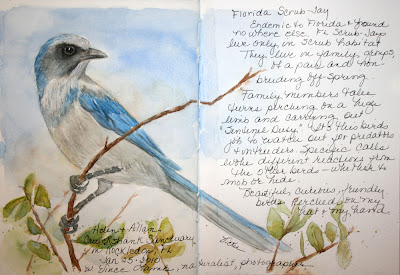 Florida Scrub-Jay
Endemic to Florida & found
no where else. Fl Scrub-Jays
live only in scrub habitat
They live in family groups,
of a pair and non-
breeding off spring.
Family members take
turns perching on a high
limb and carrying out
"Sentinel Duty." It's this birds
job to watch out for predators
& intruders. Specific calls
evoke different reactions from
the other birds - whether to
mob or hide.
Beautiful, curious, friendly
birds perched on my
hat & my hand.
Helen & Allan
Cruickshank Sanctuary
in Rockledge, FL
Jan 25, 2010
w/ Vince Lamb, naturalist, photographer